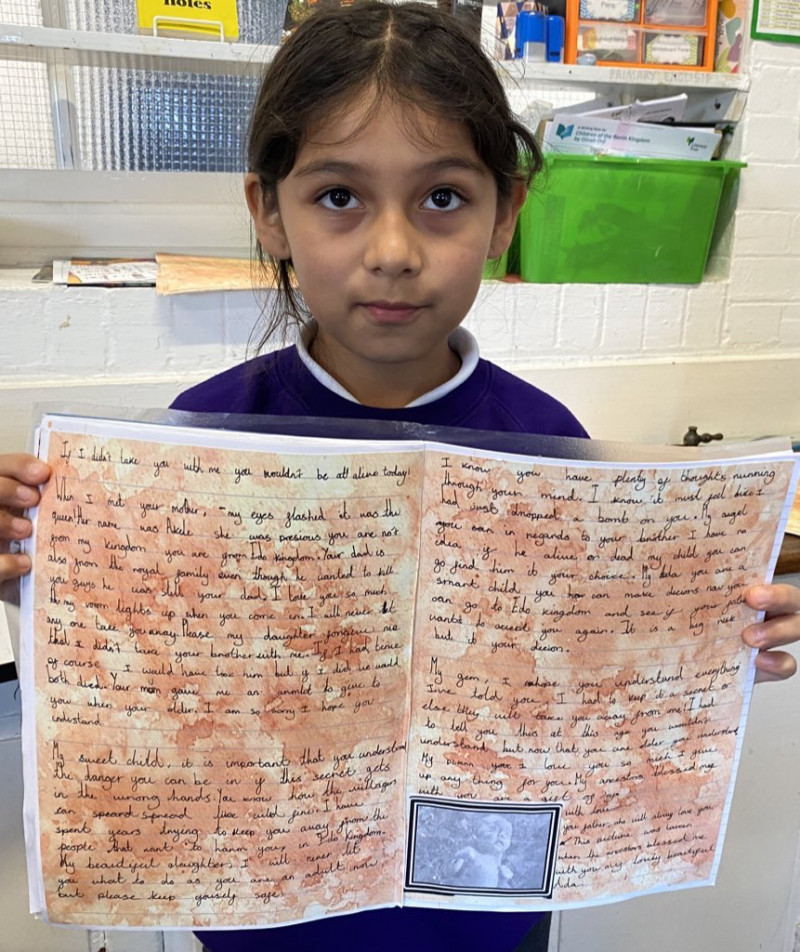 Notes
Pens
PRIMARY
Children of the Benin Kingdom
If I didn't take you with me you wouldn't be all alive today!
When I met your mother, my eyes flashed it was the
queen. Her name was Adele she was precious you are not
from my kingdom you are from Ido kingdom. Your dad is
also from the royal family even though he wanted to kill
you guys he was still your dad. I love you so much
the my room lights up when you come in. I will never let
any one take you away. Please my daughter forgive me
that I didn't take your brother with me. If I had time
of course I would have took him but if I did he would
both died. Your mom gave me an amulet to give to
you when your older. I am so sorry I hope you
understand.
My sweet child, it is important that you understand
the danger you can be in if this secret gets
in the wrong hands. You know how the villagers
can spread like wild fire. I have
spent years trying to keep you away from the
people that want to harm you, in Ido kingdom.
My beautiful daughter, I will never let
you what to do as you are an adult now
but please keep safe.
I know you have plenty of thoughts running
through your mind. I know it must feel like I
had just dropped a bomb on you. My angel
you son in regards to your brother I have no
idea if he alive or dead my child you can
go find him it your choice. My you are a
smart child you can make now you
can go to Ido kingdom and see if your
wants to accept you again. It is a big risk
but it your
My gem, I you understand everything
I've told you. I had to keep it a secret or
else they will take you away from me! I had
to tell you this at this age you wouldn't
understand but now that you are older you understand
My you I love you so much I give
up any thing for you. My ancestors blessed me
with you are a gift of
with love
you father, who will always love you
This picture was
when the ancestors blessed me
with you my lovely beautiful